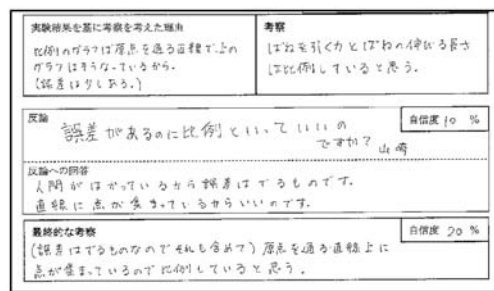 実験結果を基に考察を考えた理由
比例のグラフは原点を通る直線で、上の
グラフはそうなっているから。
(誤差は少しある。)
考察
ばねを引く力とばねの伸びる長さ
は比例していると思う。
反論
自信度 10 %
誤差があるのに比例といっていいの
ですか? 山崎
反論への回答
人間がはかっているから誤差はでるものです。
直線に点が集まっているからいいのです。
最終的な考察
自信度 20 %
(誤差はでるものなのでそれも含めて) 原点を通る直線上に
点が集まっているので比例していると思う。